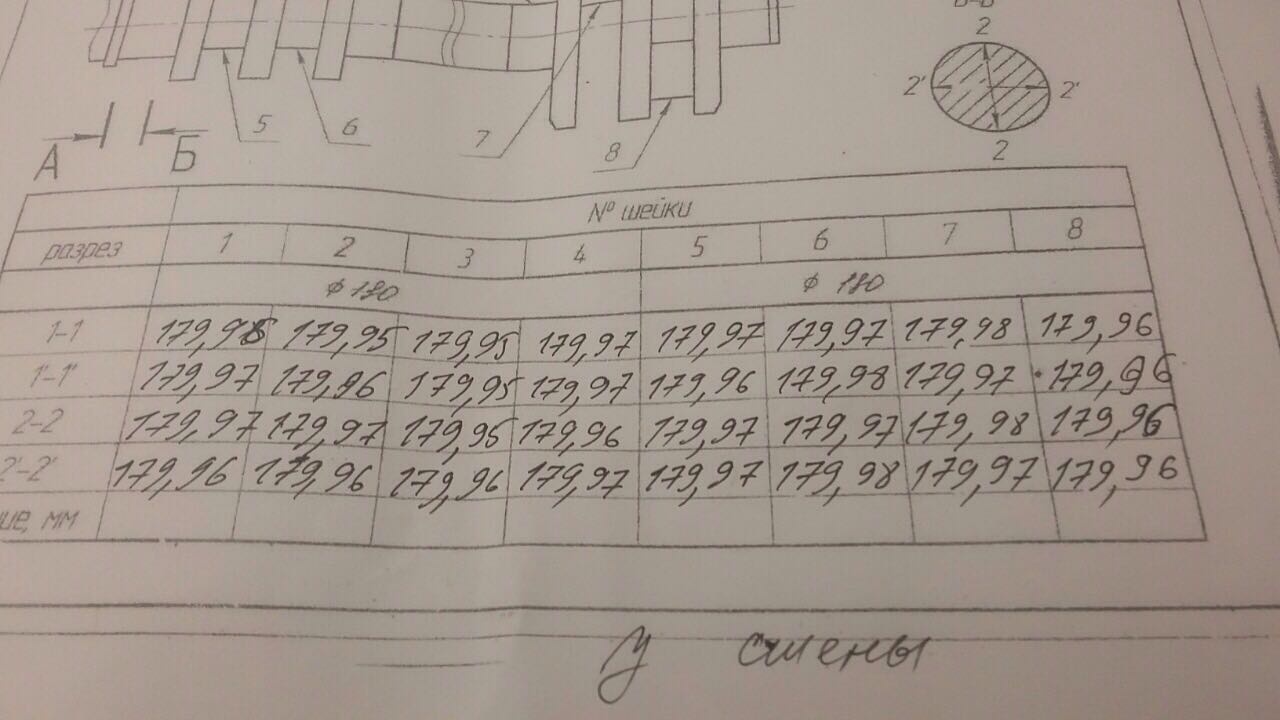 В-В
2
2' 2'
2
5 6 7 8
А Б
№ шейки
разрез 1 2 3 4 5 6 7 8
ϕ 180 ϕ 180
1-1 179,95 179,95 179,97 179,97 179,97 179,98 179,96
1'-1' 179,97 179,96 179,95 179,97 179,96 179,98 179,97 179,96
2-2 179,97 179,97 179,95 179,96 179,97 179,97 179,98 179,96
2'-2' 179,96 179,96 179,96 179,97 179,97 179,98 179,97 179,96
мм
У смены